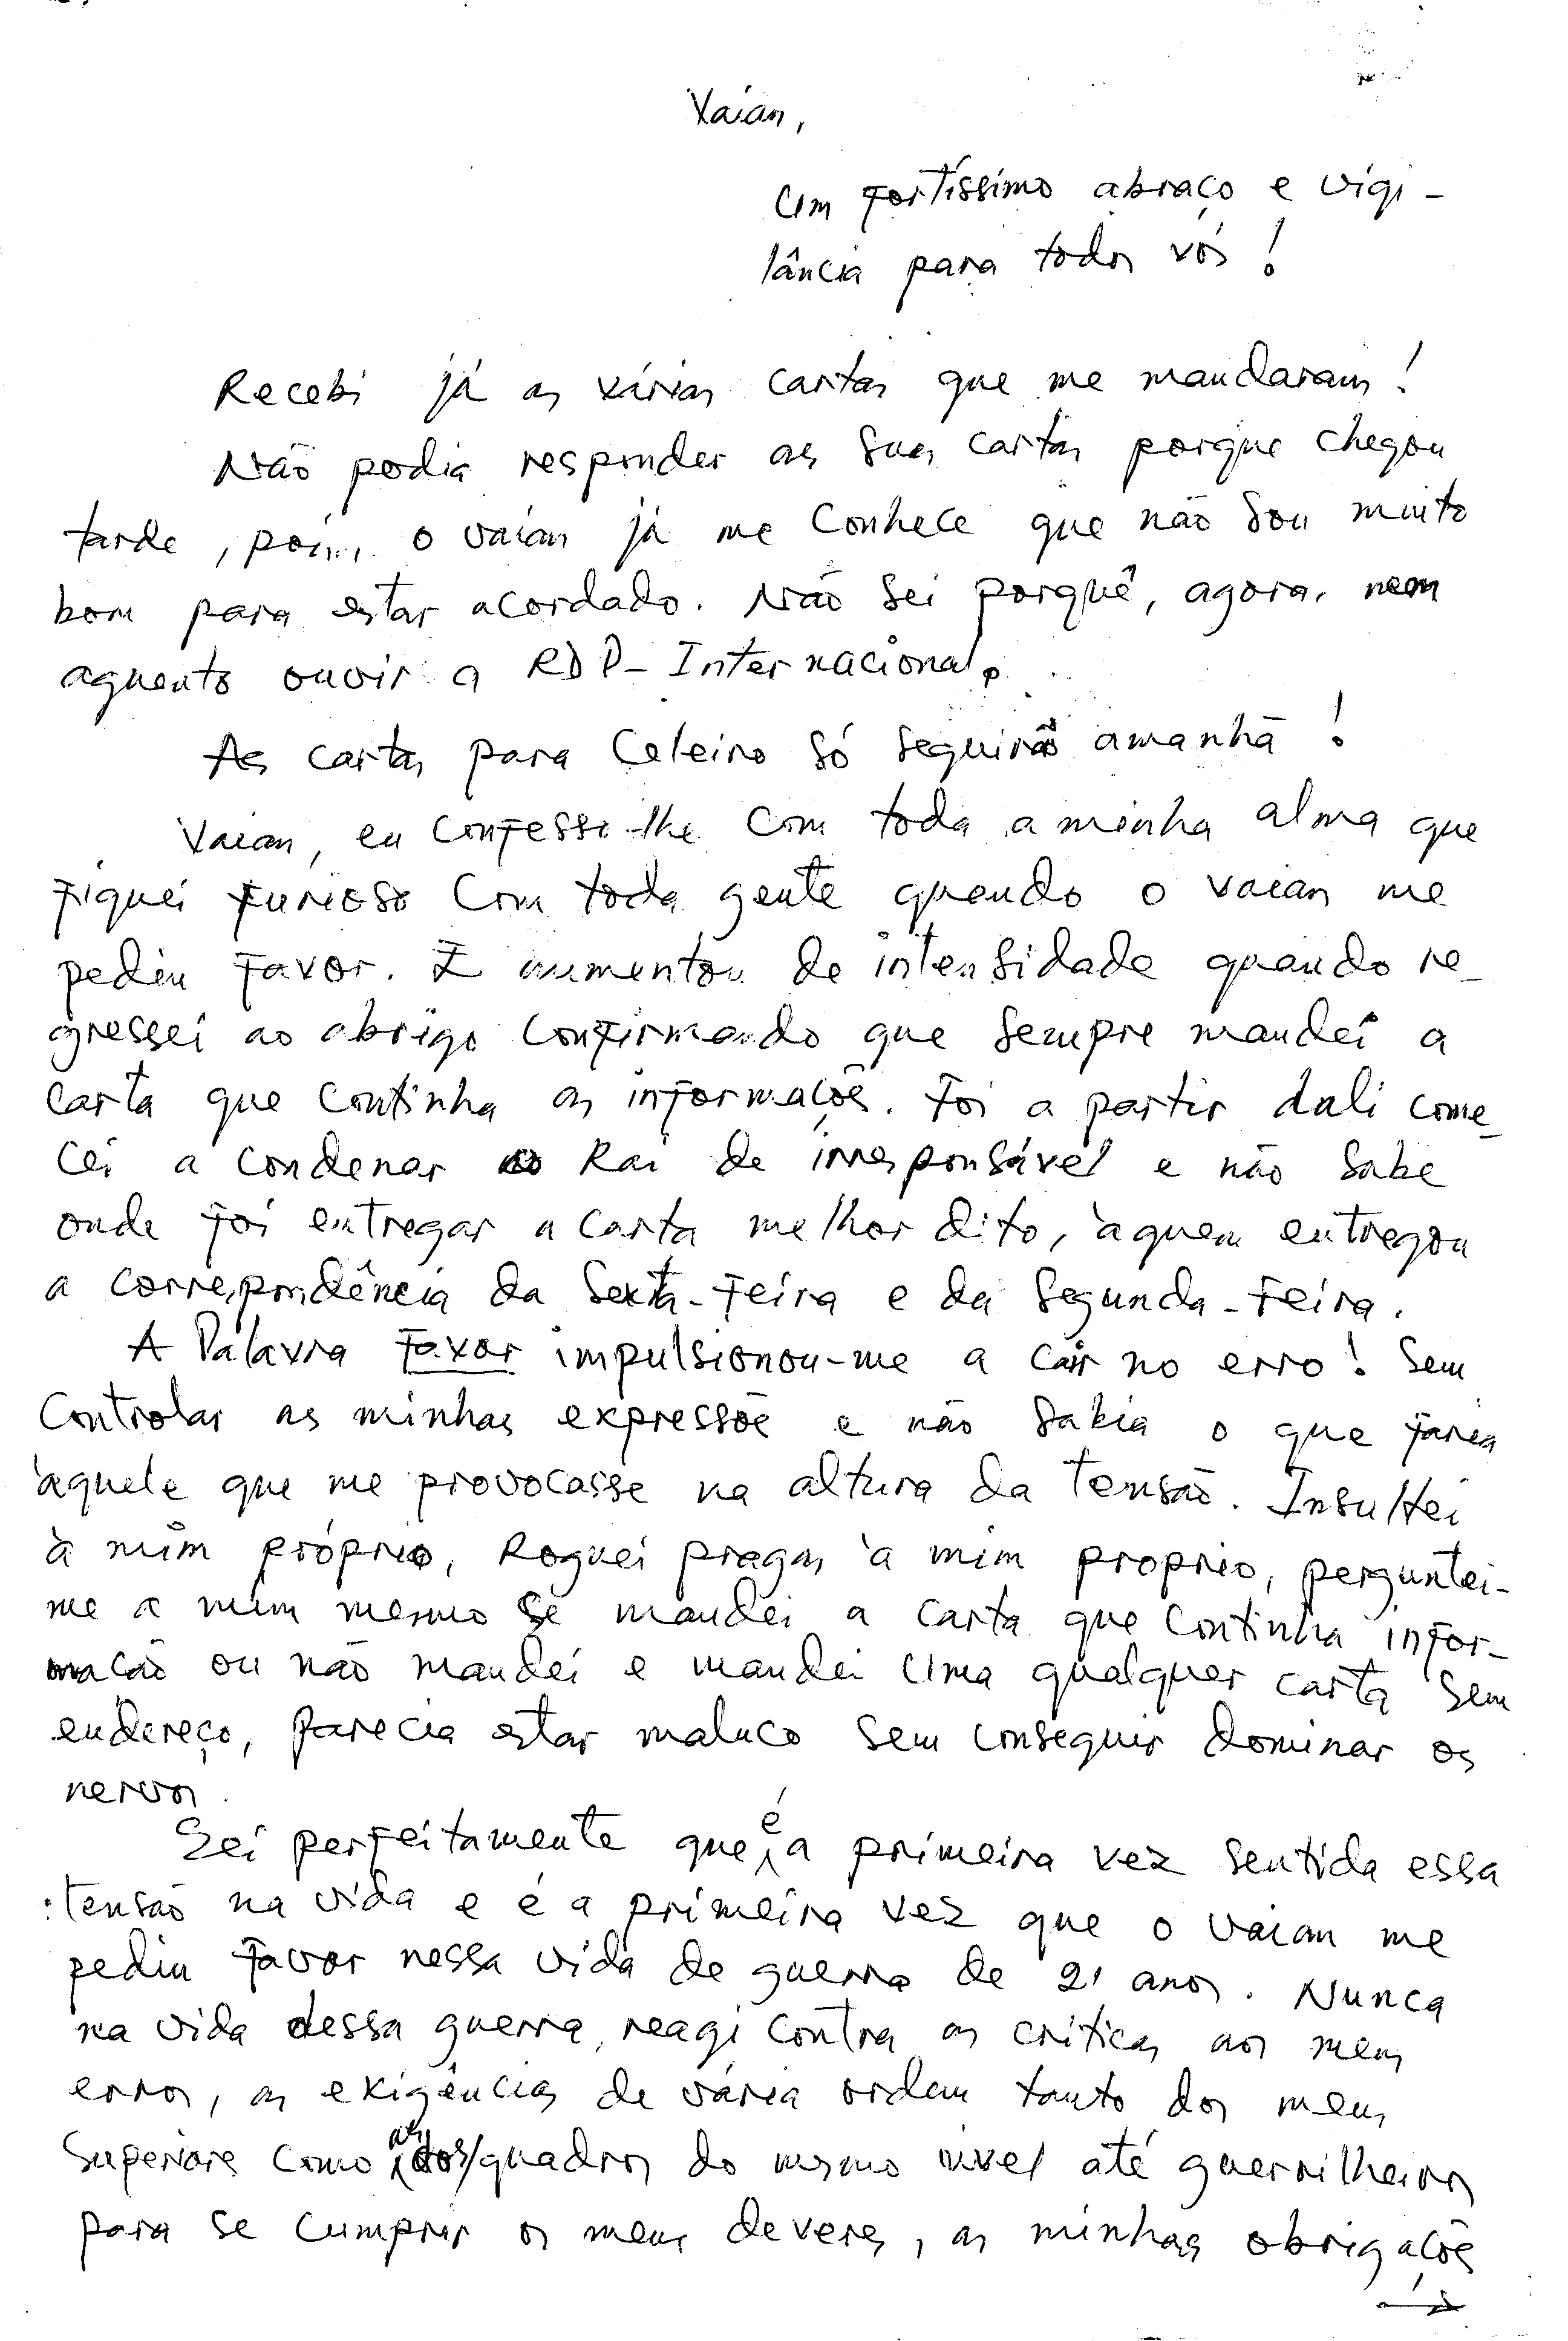 Vaian,
Um fortíssimo abraço e vigi-
lância para todos vós!
Recebi já as várias cartas que me mandaram!
Não podia responder as suas cartas porque chegou
tarde, pois, o vaian já me conhece que não sou muito
bom para estar acordado. Não sei porquê, agora, nem
aguento ouvir a RDP-Internacional.
As cartas para Celeiro só seguirão amanhã!
Vaian, eu confesso-lhe com toda a minha alma que
fiquei furioso com toda gente quando o vaian me
pediu favor. E aumentou de intensidade quando re-
gressei ao abrigo confirmando que sempre mandei a
carta que continha as informações. Foi a partir dali come-
cei a condenar ao Rai de irresponsável e não sabe
onde foi entregar a carta melhor dito, àquem entregou
a correspondência da Sexta-Feira e da Segunda-Feira.
A Palavra favor impulsionou-me a cair no erro! Sem
controlar as minhas expressões e não sabia o que faria
àquele que me provocasse na altura da tensão. Insultei
à mim próprio, Roguei pragas à mim proprio, perguntei-
me a mim mesmo se mandei a carta que continha infor-
mação ou não mandei e mandei uma qualquer carta sem
endereço, parecia estar maluco sem conseguir dominar os
nervos.
Sei perfeitamente que é a primeira vez sentida essa
tensão na vida e é a primeira vez que o vaian me
pediu favor nessa vida de guerra de 21 anos. Nunca
na vida dessa guerra, reagi contra as criticas aos meus
erros, as exigências de vária ordem tanto dos meus
Superiores como dos quadros do mesmo nivel até guerrilheiros
para se cumprir os meus deveres, as minhas obrigações